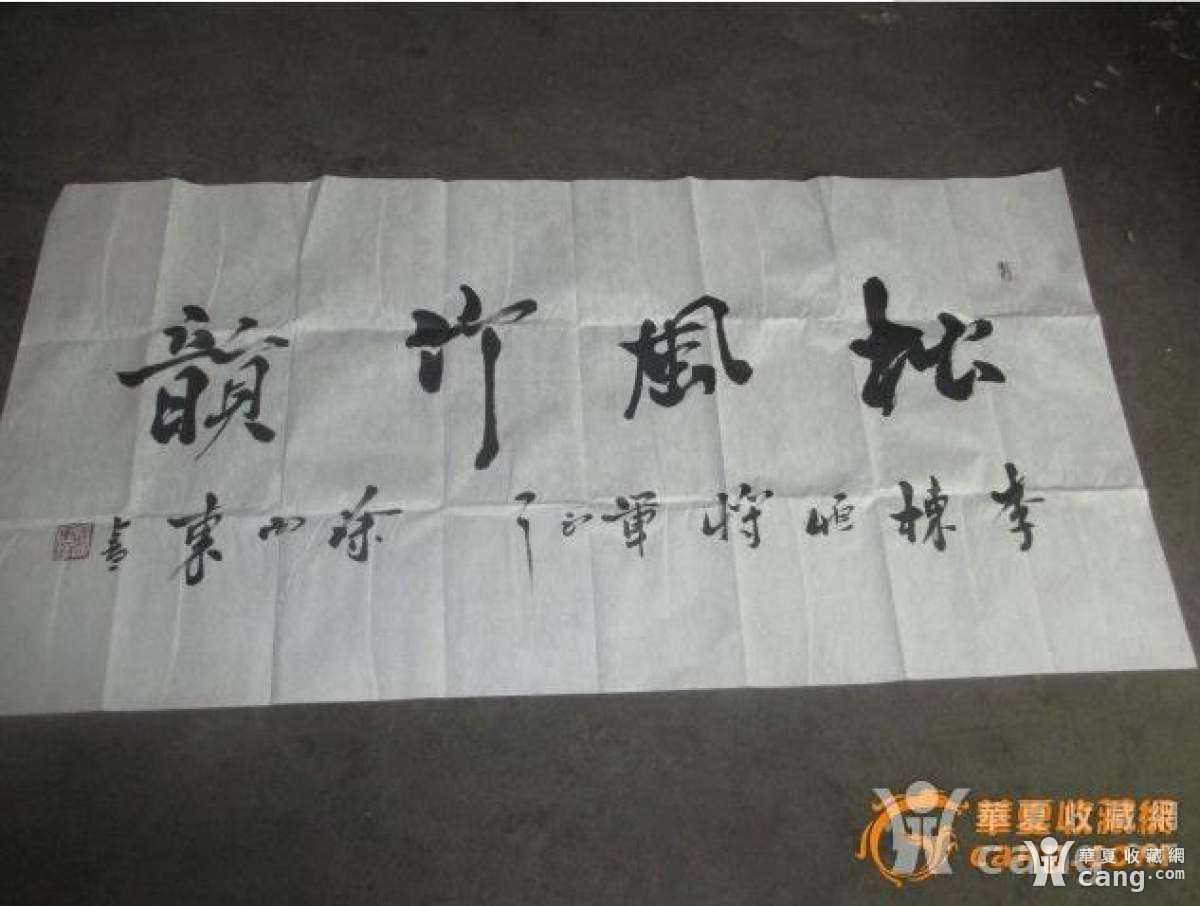 松風竹韻
李棟恒將軍正 徐小東書
華夏收藏網
cang.com
華夏收藏網
cang.com